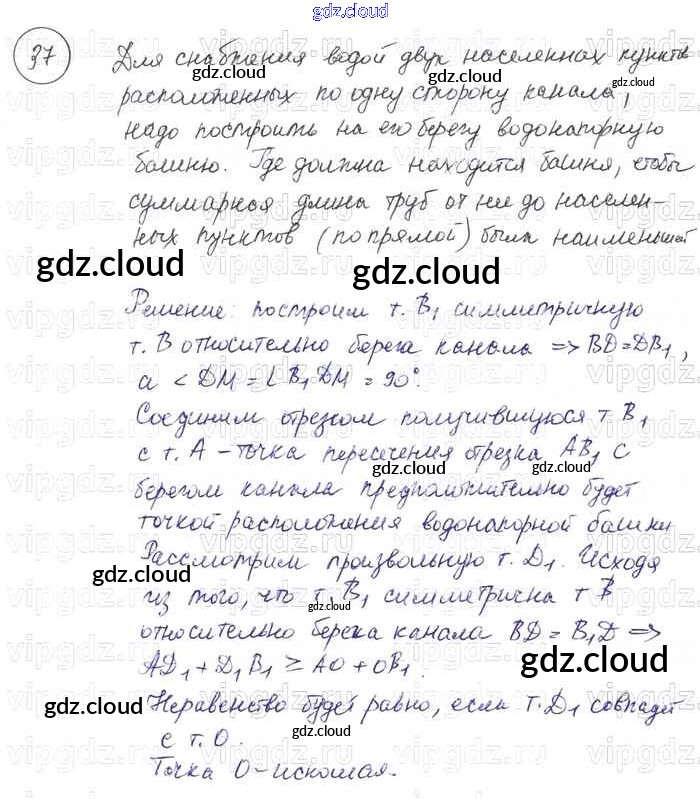 gdz.cloud
37 Для снабжения водой двух населенных пунктов
расположенных по одну сторону канала,
надо построить на его берегу водонапорную
башню. Где должна находится башня, чтобы
суммарная длина труб от нее до населен-
ных пунктов (по прямой) была наименьшей
gdz.cloud gdz.cloud
Решение: построим т. B₁ симметричную
т. B относительно берега канала => BD = DB₁,
а < DM = ∠ B₁DM = 90°.
Соединим отрезком получившуюся т B₁
с т. A - точка пересечения отрезка AB₁ с
берегом канала предположительно будет
точкой расположения водонапорной башни
Рассмотрим произвольную т. D₁. Исходя
из того, что т. B₁ симметрична т B
относительно берега канала BD = B₁D =>
AD₁ + D₁B₁ ≥ AO + OB₁.
Неравенство будет равно, если т. D₁ совпадёт
с т. O.
Точка O - искомая.